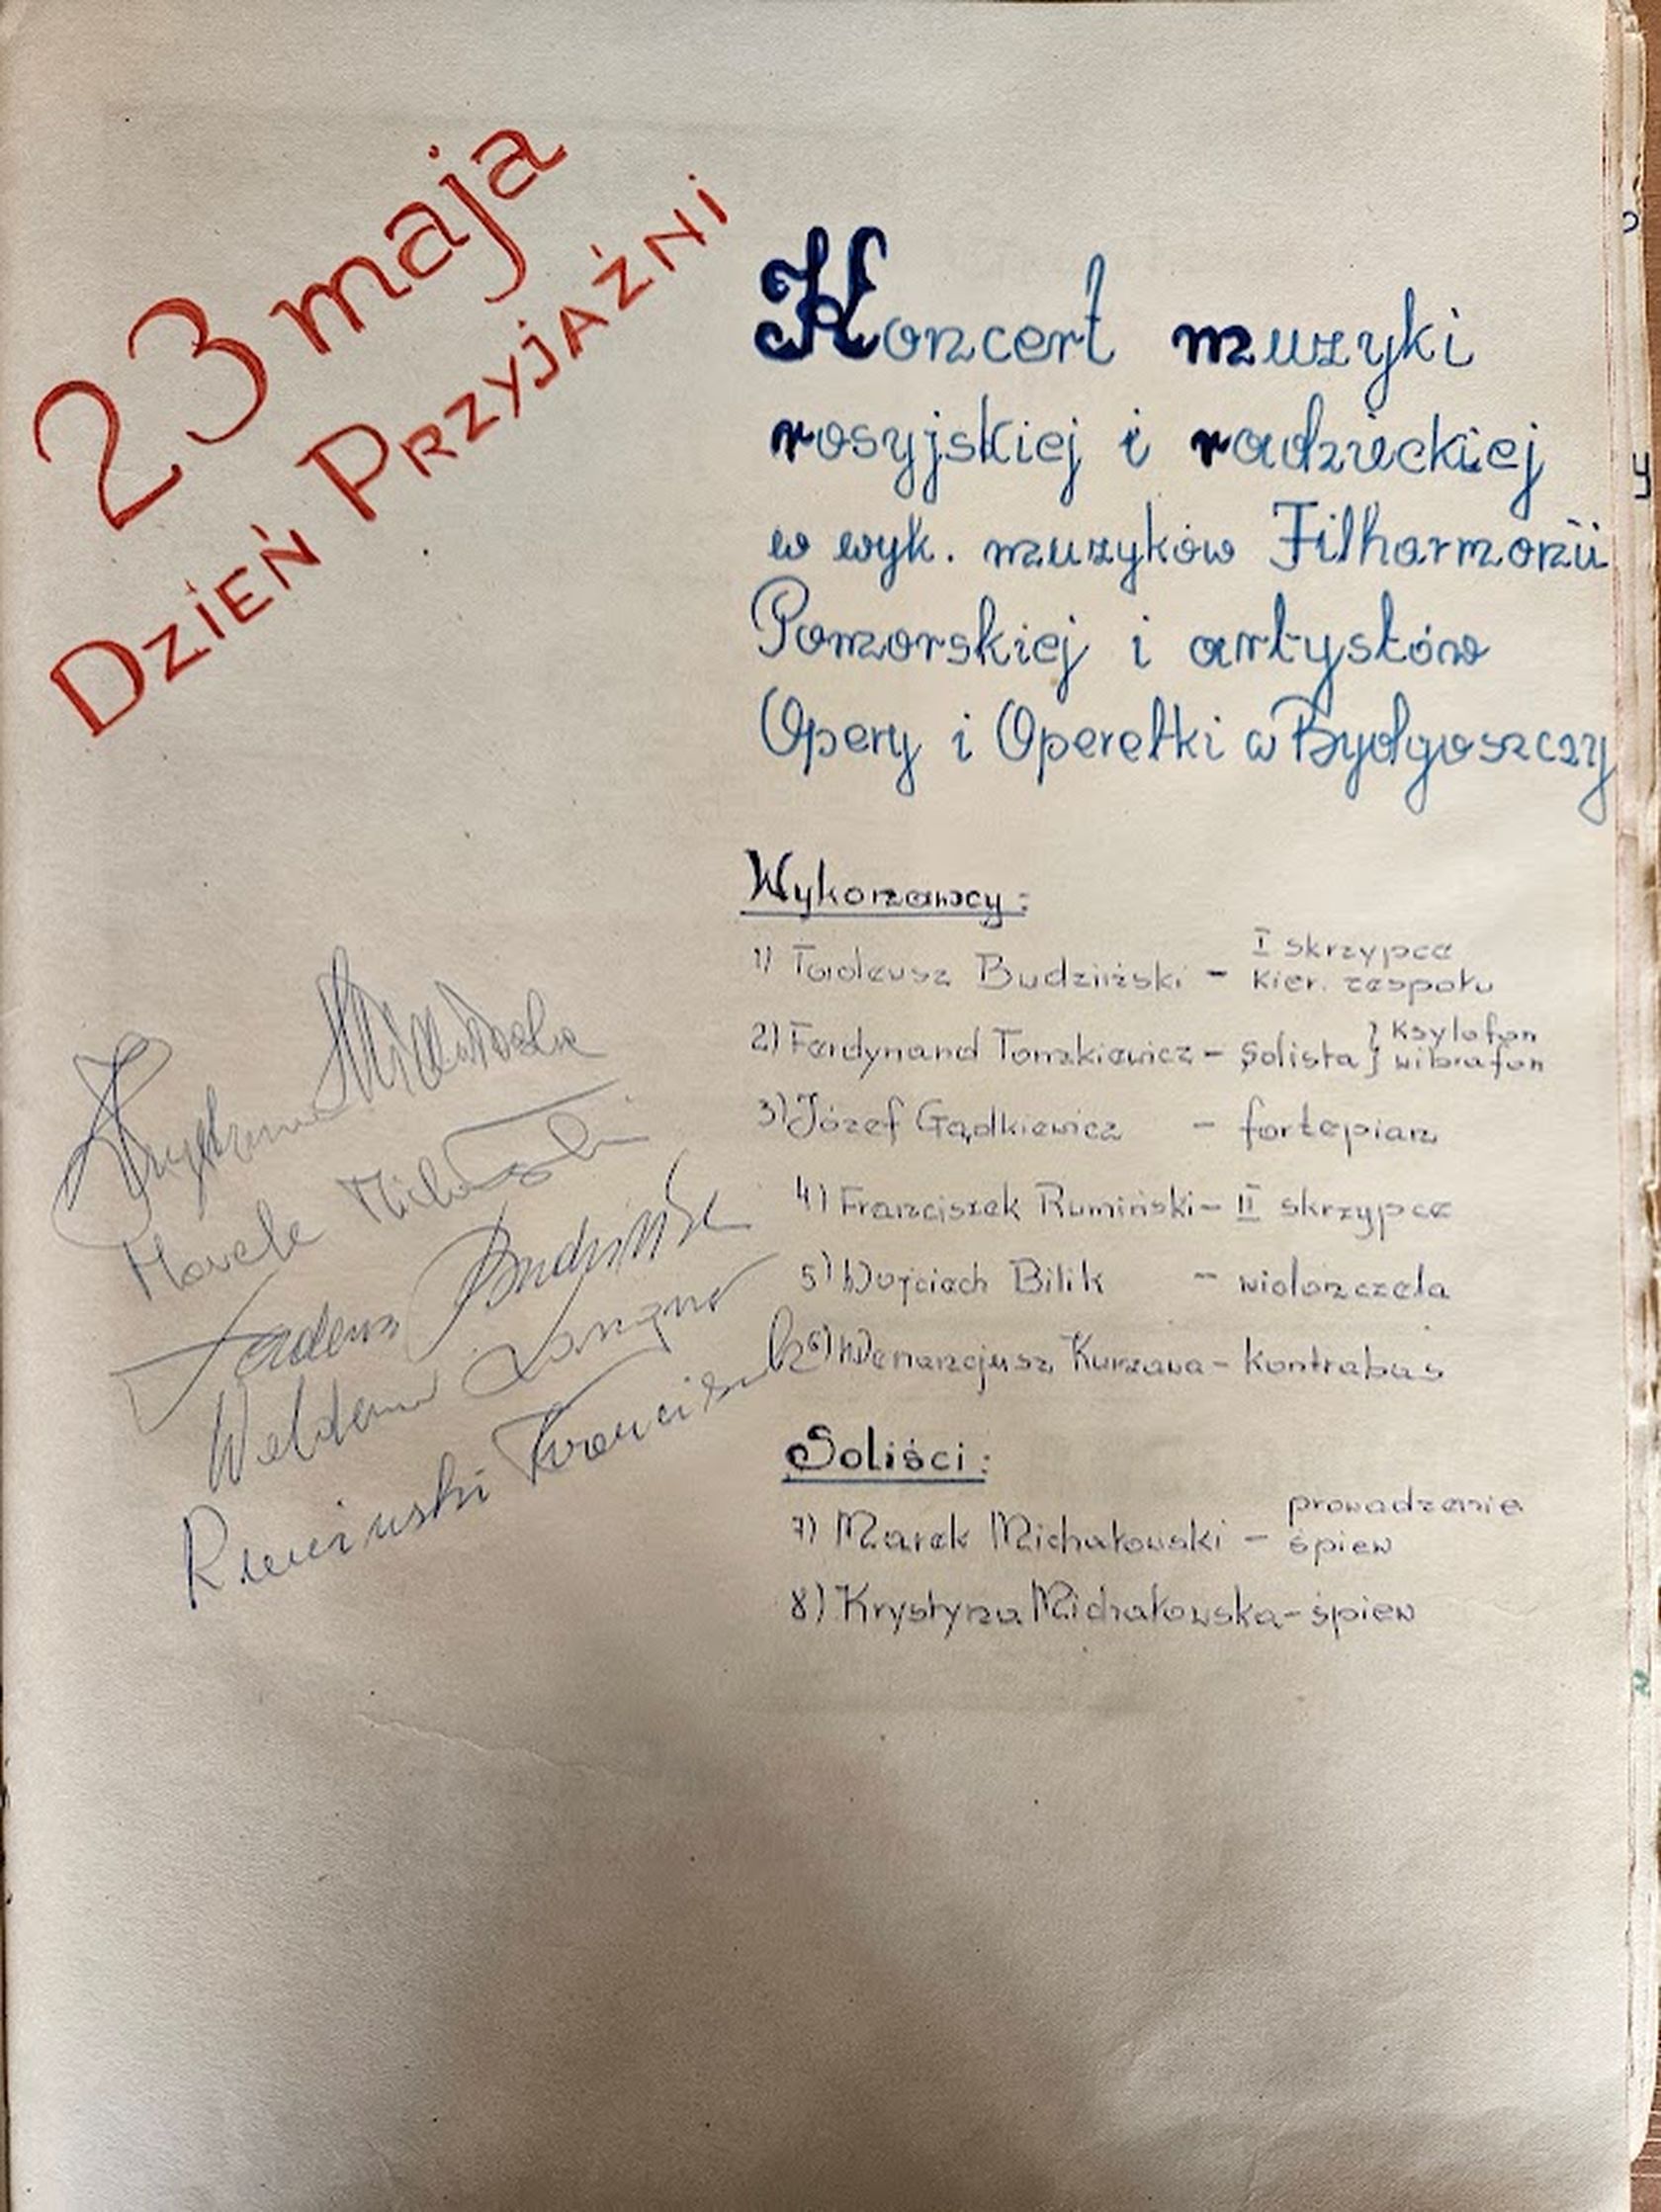 23 maja
DZIEŃ PRZYJAŹNI
Koncert muzyki
rosyjskiej i radzieckiej
w wyk. muzyków Filharmonii
Pomorskiej i artystów
Opery i Operetki w Bydgoszczy
Wykonawcy:
1) Tadeusz Budziński - I skrzypce
kier. zespołu
2) Ferdynand Tomkiewicz - Solista } Ksylofon
} wibrafon
3) Józef Gądkiewicz - fortepian
4) Franciszek Rumiński - II skrzypce
5) Wojciech Bilik - wiolonczela
6) Wenancjusz Kurzawa - kontrabas
Soliści:
7) Marek Michałowski - prowadzenie
śpiew
8) Krystyna Michałowska - śpiew
Krystyna Michałowska
Tadeusz Budziński
Waldemar
Rumiński Franciszek